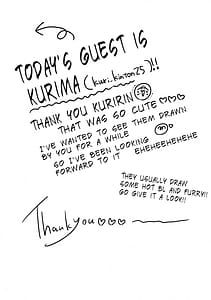 TODAY'S GUEST IS
KURIMA (kuri.kinton25)!!
THANK YOU KURIRIN
THAT WAS SO CUTE ♡♡♡
I'VE WANTED TO SEE THEM DRAWN
BY YOU FOR A WHILE
SO I'VE BEEN LOOKING
FORWARD TO IT EHEHEEHEHEHE
THEY USUALLY DRAW
SOME HOT BL AND FURRY!!
GO GIVE IT A LOOK!!
Thank you ♡♡♡